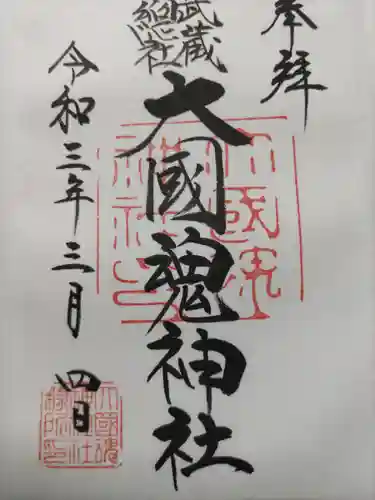 奉拝
武蔵
總社
大國魂神社
令和三年三月四日